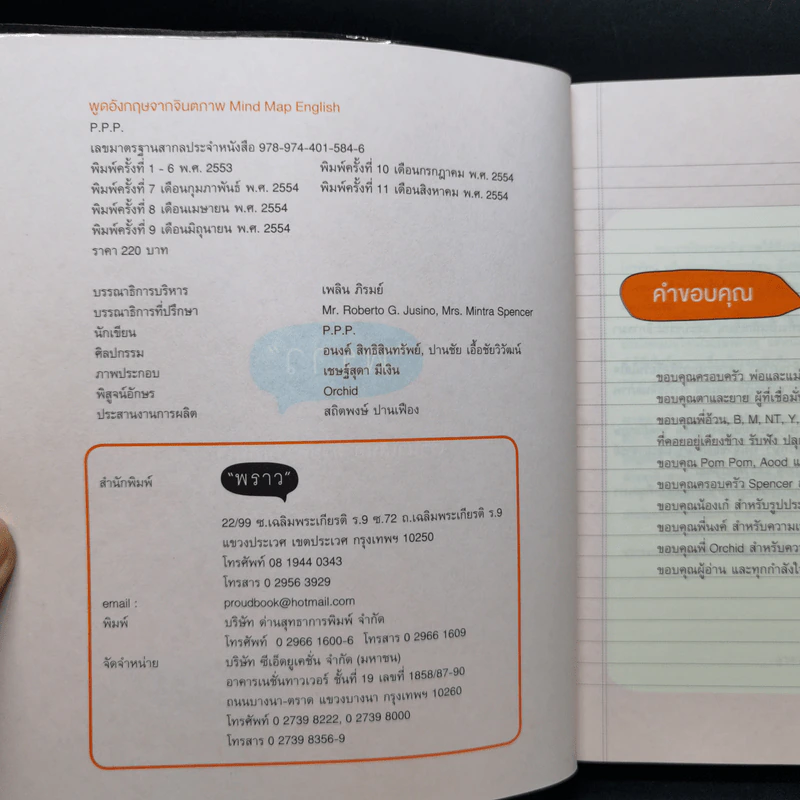 พูดอังกฤษจากจินตภาพ Mind Map English
P.P.P.
เลขมาตรฐานสากลประจำหนังสือ 978-974-401-584-6
พิมพ์ครั้งที่ 1 - 6 พ.ศ. 2553
พิมพ์ครั้งที่ 7 เดือนกุมภาพันธ์ พ.ศ. 2554
พิมพ์ครั้งที่ 8 เดือนเมษายน พ.ศ. 2554
พิมพ์ครั้งที่ 9 เดือนมิถุนายน พ.ศ. 2554
พิมพ์ครั้งที่ 10 เดือนกรกฎาคม พ.ศ. 2554
พิมพ์ครั้งที่ 11 เดือนสิงหาคม พ.ศ. 2554
ราคา 220 บาท
บรรณาธิการบริหาร เพลิน ภิรมย์
บรรณาธิการที่ปรึกษา Mr. Roberto G. Jusino, Mrs. Mintra Spencer
นักเขียน P.P.P.
ศิลปกรรม อนงค์ สิทธิสินทรัพย์, ปานชัย เอื้อชัยวิวัฒน์
ภาพประกอบ เชษฐ์สุดา มีเงิน
พิสูจน์อักษร Orchid
ประสานงานการผลิต สถิตพงษ์ ปานเฟือง
สำนักพิมพ์ "พราว"
22/99 ซ.เฉลิมพระเกียรติ ร.9 ซ.72 ถ.เฉลิมพระเกียรติ ร.9
แขวงประเวศ เขตประเวศ กรุงเทพฯ 10250
โทรศัพท์ 08 1944 0343
โทรสาร 0 2956 3929
email : proudbook@hotmail.com
พิมพ์ บริษัท ด่านสุทธาการพิมพ์ จำกัด
โทรศัพท์ 0 2966 1600-6 โทรสาร 0 2966 1609
จัดจำหน่าย บริษัท ซีเอ็ดยูเคชั่น จำกัด (มหาชน)
อาคารเนชั่นทาวเวอร์ ชั้นที่ 19 เลขที่ 1858/87-90
ถนนบางนา-ตราด แขวงบางนา กรุงเทพฯ 10260
โทรศัพท์ 0 2739 8222, 0 2739 8000
โทรสาร 0 2739 8356-9
คำขอบคุณ
ขอบคุณครอบครัว พ่อและแม่
ขอบคุณตาและยาย ผู้ที่เชื่อมั่
ขอบคุณพี่อ้วน, B, M, NT, Y,
ที่คอยอยู่เคียงข้าง รับฟัง ปลุ
ขอบคุณ Pom Pom, Aood แ
ขอบคุณครอบครัว Spencer
ขอบคุณน้องเก๋ สำหรับรูปประ
ขอบคุณพี่นงค์ สำหรับความ
ขอบคุณพี่ Orchid สำหรับคว
ขอบคุณผู้อ่าน และทุกกำลังใ